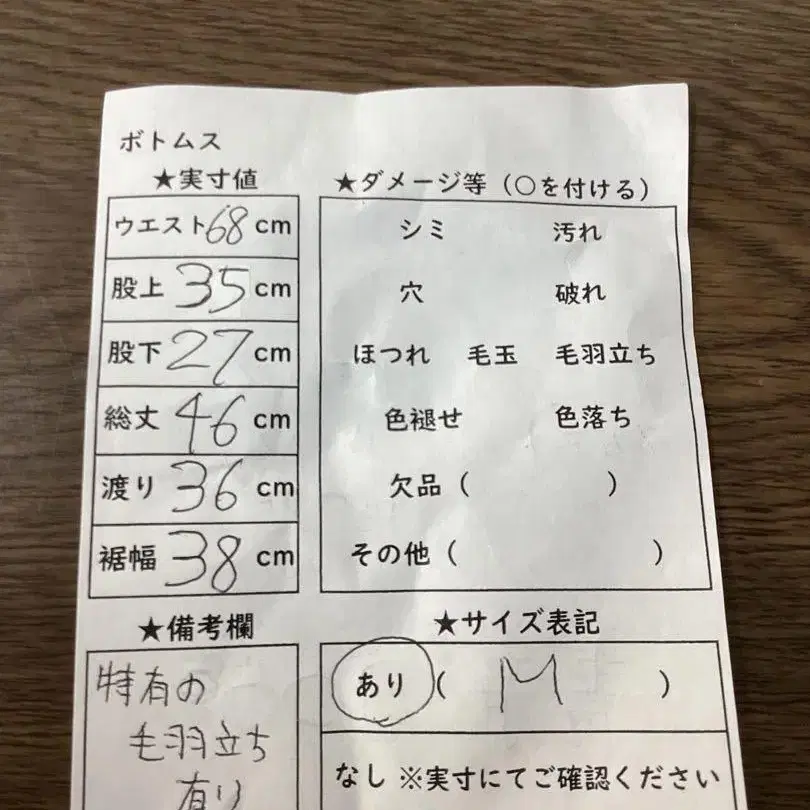 ボトムス
★実寸値
ウエスト68cm
股上 35cm
股下 27cm
総丈 46cm
渡り 36cm
裾幅 38cm
★ダメージ等（○を付ける）
シミ 汚れ
穴 破れ
ほつれ 毛玉 毛羽立ち
色褪せ 色落ち
欠品（ ）
その他（ ）
★備考欄
特有の
毛羽立ち
有り
★サイズ表記
あり（ M ）
なし ※実寸にてご確認ください